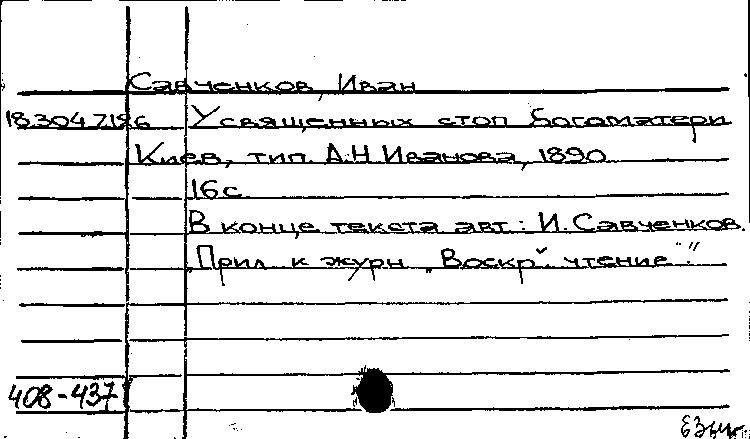 Савченков, Иван
18.304.7.196 У священных стоп богоматери
Киев, тип. А.Н. Иванова, 1890
16 с.
В конце текста авт.: И. Савченков.
„Прил. к журн. „Воскр. чтение"."
408-437